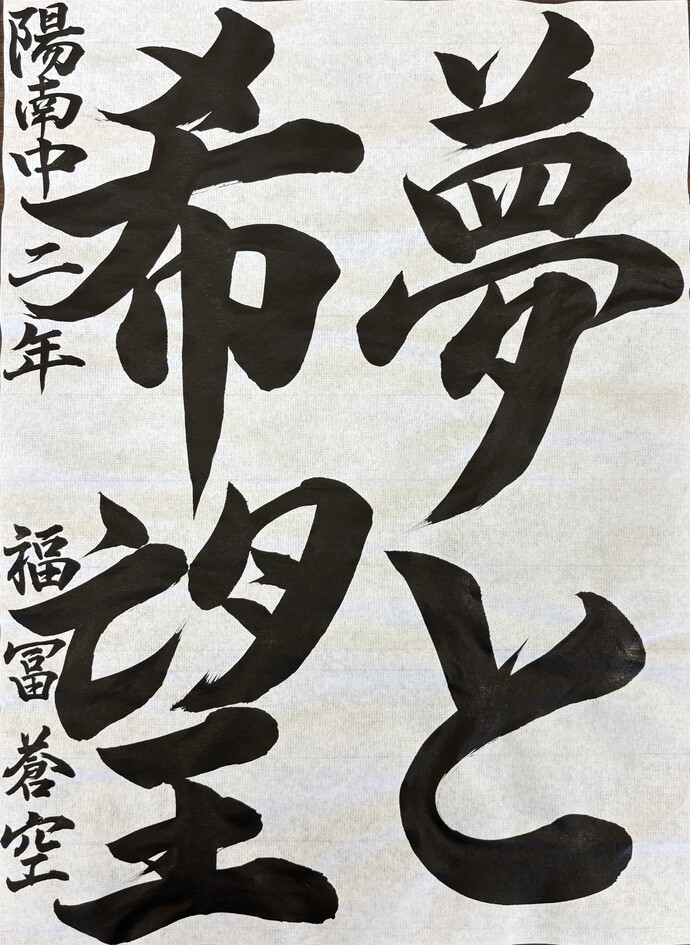 夢と
希望
陽南中二年 福冨蒼空